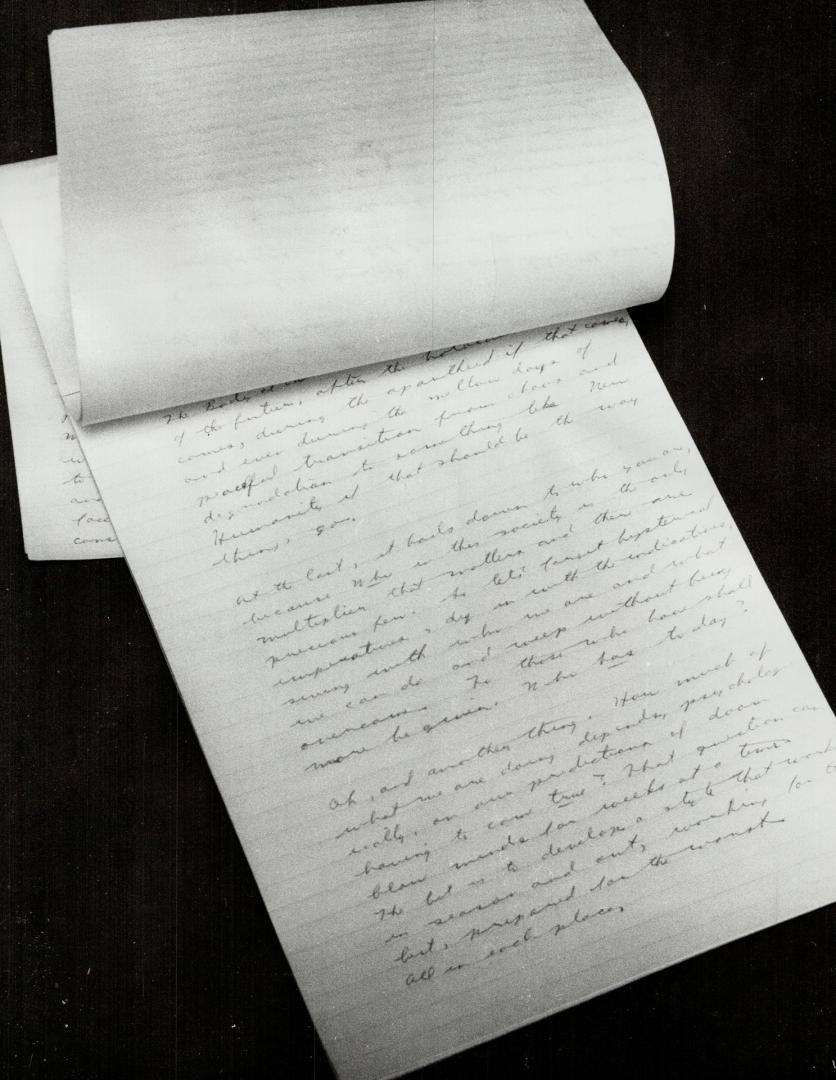 The Body
of the future, after the
comes, during the apartheid if that comes,
and even during the mellow days of
peaceful transition from chaos and
degradation to something like New
Humanity if that should be the way
things go.
At the last, it boils down to who you are,
because who in this society is the only
multiplier that matters and there are
precious few. So let's forget hysterical
imperatives, dig in with the indicatives,
swing with who we are and what
we can do and weep without being
overcome. To those who have shall
more be given. Who has today?
Oh, and another thing. How much of
what we are doing depends, psycholog-
ically, on our predictions of doom
having to come true? That question can
blow minds for weeks at a time.
The bit is to develop a style that works
in season and out, working for the
best, prepared for the worst
all in each place.